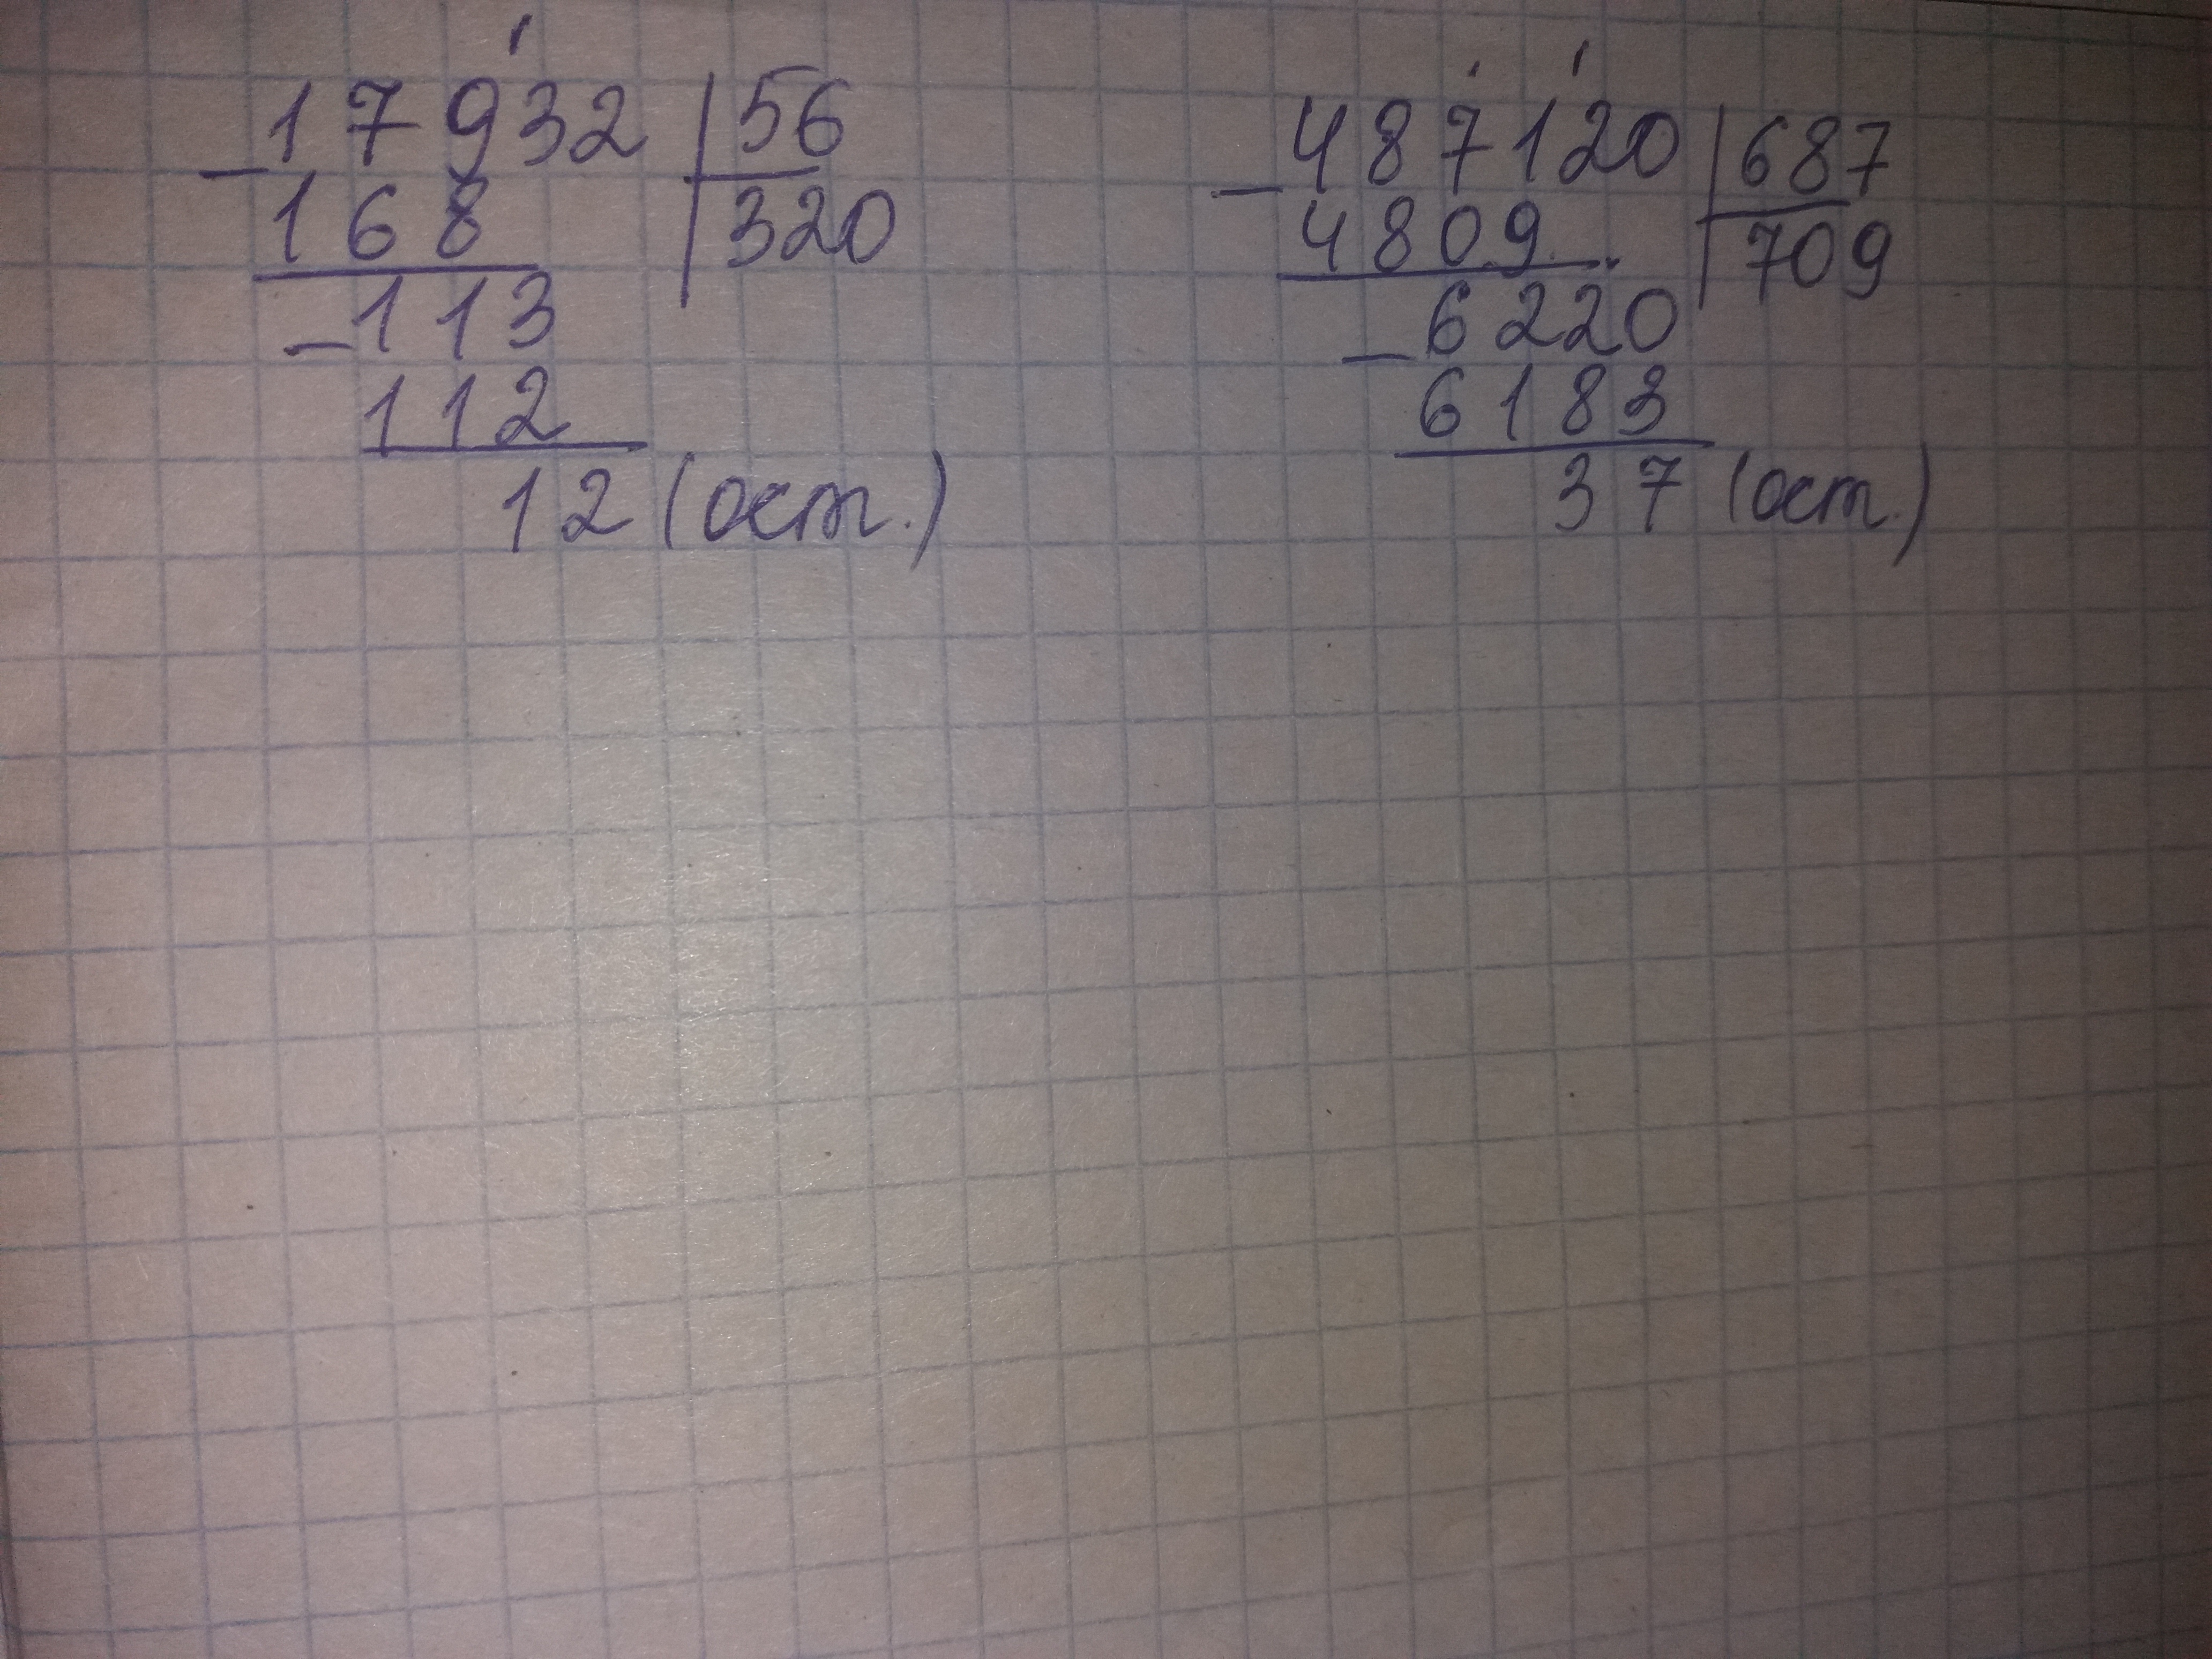 17932 | 56
168 | 320
113
112
12 (ост.)
487120 | 687
4809 | 709
6220
6183
37 (ост.)